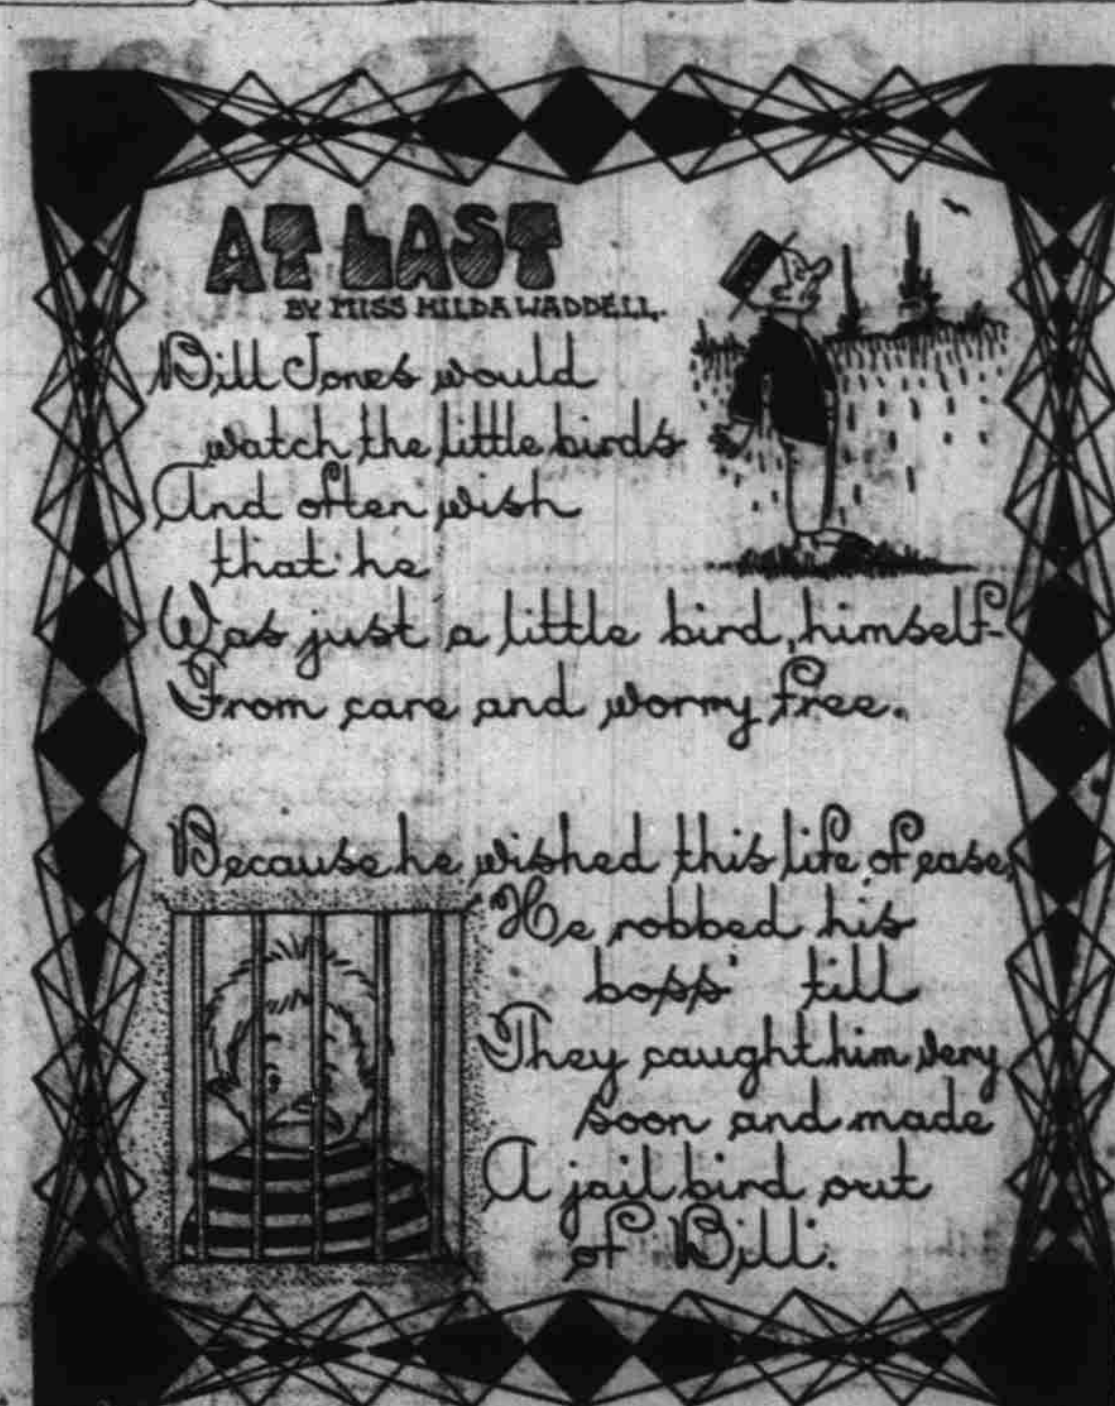 AT LAST
BY MISS HILDA WADDELL.
Bill Jones would
watch the little birds
And often wish
that he
Was just a little bird, himself-
From care and worry free.
Because he wished this life of ease,
He robbed his
boss till
They caught him very
soon and made
A jail bird out
of Bill.